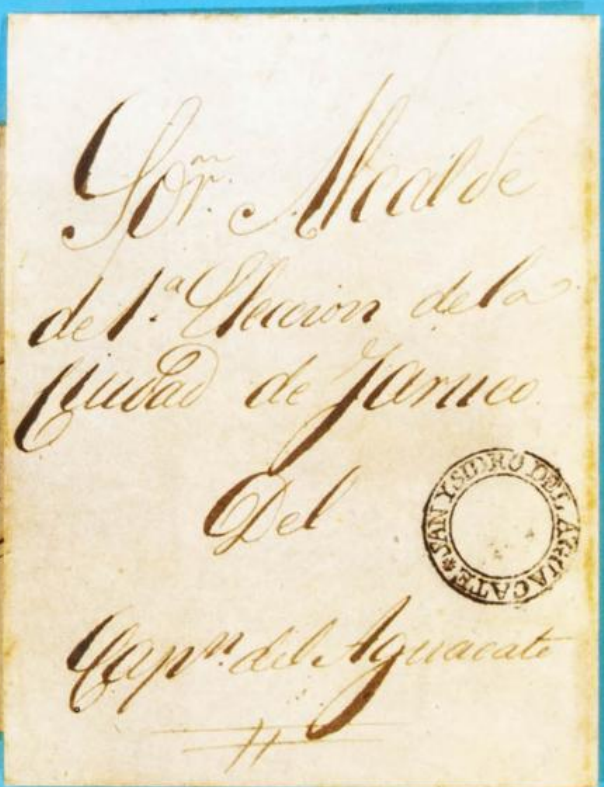 Sor. Alcalde
de 1ª. Eleccion de la
Ciudad de Jaruco.
Del
SAN YSIDRO DEL AGUACATE
Capn. del Aguacate